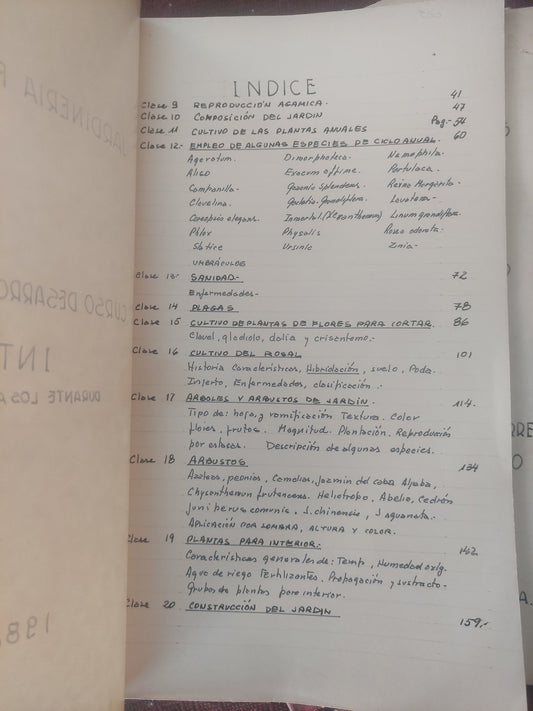 INDICE
Clase 9 REPRODUCCIÓN AGAMICA. 41
Clase 10 COMPOSICIÓN DEL JARDIN 47
Clase 11 CULTIVO DE LAS PLANTAS ANUALES Pag.- 54
Clase 12- EMPLEO DE ALGUNAS ESPECIES DE CICLO ANUAL. 60
Ageratum. Dimorphoteca. Nemophila.
Aliso Exacum affime. Portulaca.
Campanilla. Gazania splendens. Reina Margarita.
Clavelina. Godetia. Grandiflora. Lavatera.
Coreopsis elegans. Inmortal. (Xeranthemum) Linum grandiflora.
Phlox Physalis Reseo odorata.
Statice Ursinia Zinia.
UMBRÁCULOS
Clase 13- SANIDAD.- 72
Enfermedades.-
Clase 14 PLAGAS 78
Clase 15 CULTIVO DE PLANTAS DE FLORES PARA CORTAR. 86
Clavel, gladiolo, dalia y crisantemo.-
Clase 16 CULTIVO DEL ROSAL 101
Historia Características, Hibridación, suelo, Poda.
Injerto, Enfermedades, clasificación.-
Clase 17 ARBOLES Y ARBUSTOS DE JARDIN. 114.-
Tipo de: hoja, y ramificación Textura. Color
flores, frutos. Magnitud. Plantación. Reproducción
por estacas. Descripción de algunas especies.
Clase 18 ARBUSTOS 134
Azaleas, peonias, Camelias, Jazmin del cabo Aljaba,
Chysanthemun frutencens. Heliotropo, Abelia, Cedrón
juniperus comunis, J. chinensis, J squamata.-
APLICACIÓN POR SOMBRA, ALTURA Y COLOR.
Clase 19 PLANTAS PARA INTERIOR.- 142
Características generales de: Temp, Humedad oxig.
Agua de riego Fertilizantes, Propagación y sustracto-
Grupos de plantas para interior.
Clase 20 CONSTRUCCIÓN DEL JARDIN 159.-
JARDINERIA
CURSO DESARRO
INT
DURANTE LOS A
198